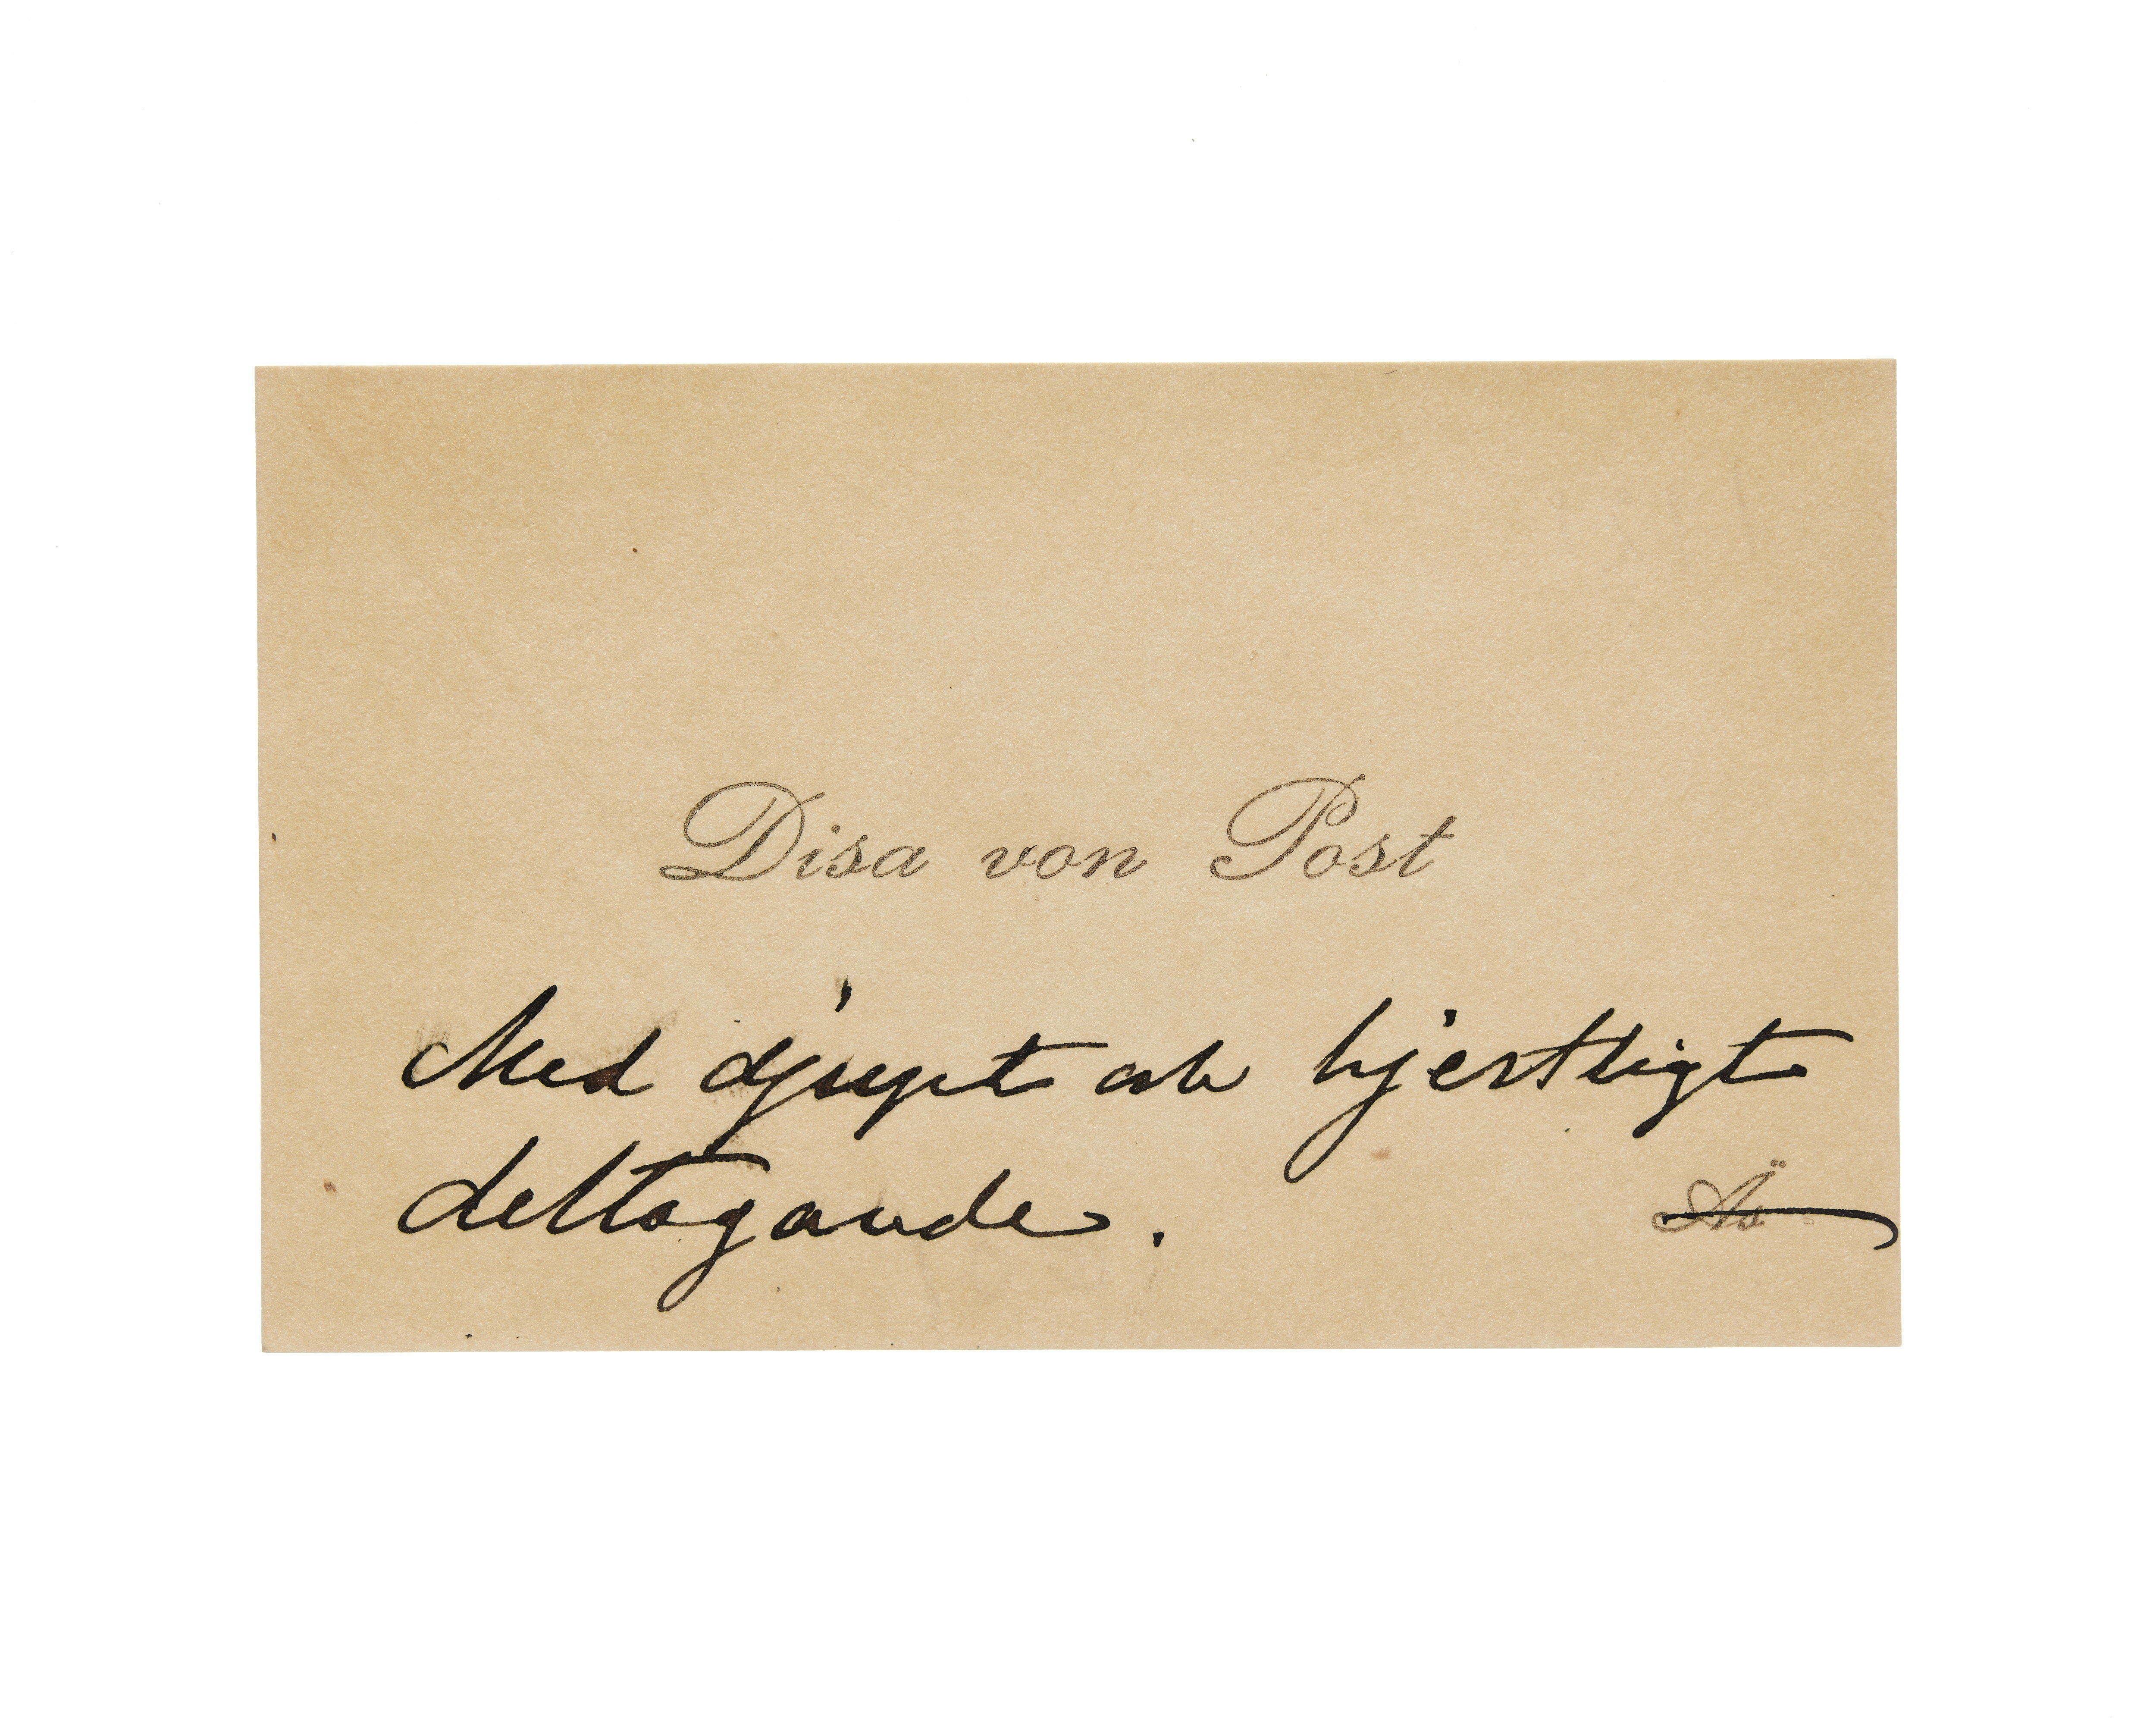 Disa von Post
Med djupt och hjertligt
deltagande.